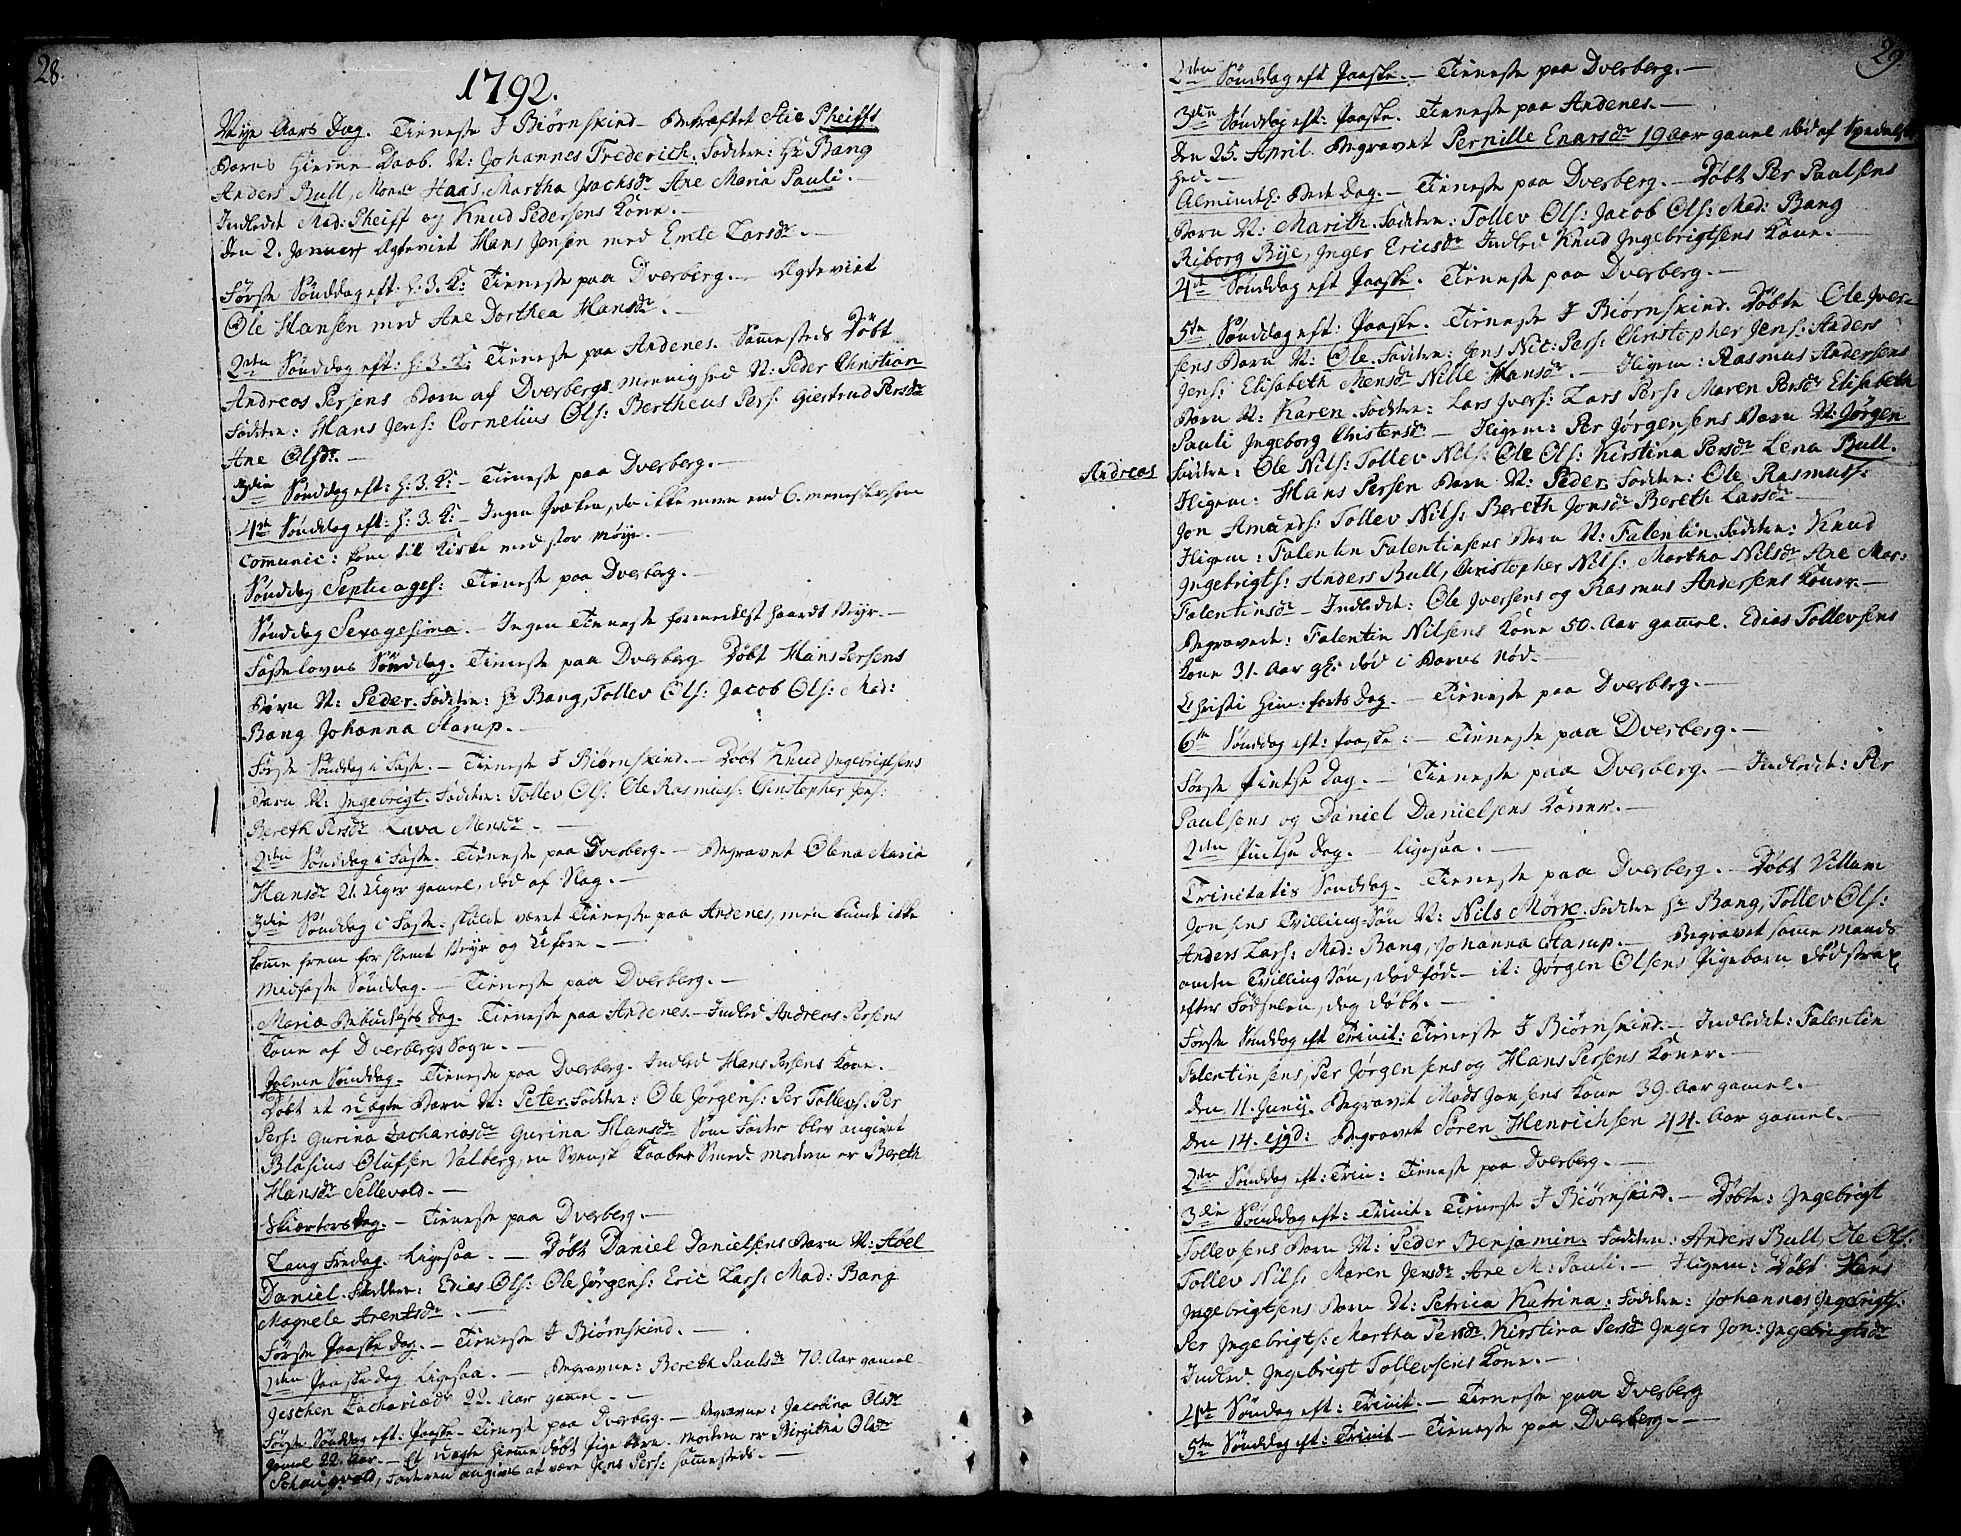 28.
1792.
Nÿe Aars Dag. Tieneste I Biørnskind – Bekræftet Stie Pheiffs
Barns Hiemme-Daab. N: Johannes Frederich. Faddere: Hr Bang
Anders Bull, Monsr Haas, Martha Jsachsdr Ane Maria Pauli. –
Indledt Mad: Pheiff og Knud Pedersens Kone. –
Den 2. Januarj Ægteviet Hans Jensen med Emle Larsdr. –
Første Sønddag eft: h. 3. K: Tieneste paa Dverberg. – Ægteviet
Ole Hansen med Ane Dorthea Hansdr. –
2den Sønddag eft: h. 3. K: Tieneste paa Andenes. Sammesteds Døbt
Andreas Persens Barn af Dverbergs Meenighed N: Peder Christian
Faddere: Hans Jens: Cornelius Ols: Bertheus Pers: Giertrud Persdr
Ane Olsdr. –
3die Sønddag eft: h. 3. K: – Tieneste paa Dverberg. –
4de Sønddag eft: h. 3. K: – Ingen Præken, da ikke mere end 6. mennesker som
Communic: kom till Kirke med stor Møye. –
Sønddag Septuages: Tieneste paa Dverberg. –
Sønddag Sexagesima. – Ingen Tieneste formedelst haardt Veyr. –
Fastelavns Sønddag. Tieneste paa Dverberg Døbt Hans Persens
Barn N: Peder. Faddere: Hr Bang, Tollev Ols: Jacob Ols: Mad:
Bang Johanna Aarup. –
Første Sønddag i Faste. – Tieneste I Biørnskind. – Døbt Knud Jngebrigtsens
Barn N: Jngebrigt. Faddere: Tollev Ols: Ole Rasmuss: Christopher Jens:
Bereth Persdr Lava Mensdr. –
2den Sønddag i Faste. Tieneste paa Dverberg. – Begravet Olena Maria
Hansdr 21. Uger gamel, død af Slag. –
3die Sønddag i Faste: skulde været Tieneste paa Andenes, men kunde ikke
komme frem for slemt Veyr og Ufore. –
Midfaste Sønddag. – Tieneste paa Dverberg. –
Mariæ Bebudelses Dag. Tieneste paa Andenes. – Indled Andreas Persens
Kone af Dverbergs Sogn. –
Palme Sønddag. – Tieneste paa Dverberg. Indled Hans Persens Kone.
Døbt et uægte Barn N: Peter. Faddere: Ole Jørgens: Per Tollevs: Per
Pers: Gurina Zachariasdr Gurina Hansdr Som Fader blev angivet
Blasius Olufsen Valberg, en Svensk Kaaber Smed. Modern er Bereth
Hansdr Sellevold. –
Skiærtorsdag. – Tieneste paa Dverberg. –
Lang Fredag. Ligesaa. – Døbt Daniel Danielsens Barn N: Abel
Daniel. Faddere: Edias Ols: Ole Jørgens: Eric Lars: Mad: Bang
Magnele Arentsdr. –
Første Paaske Dag. – Tieneste I Biørnskind. –
2den Paaske Dag Ligesaa. – Begravne: Bereth Paulsdr 70. Aar gamel.
Jeschen Zachariædr 22. Aar gamel. –
Første Sønddag eft: Paaske – Tieneste paa Dverberg. – Begravne: Jacobina Olsdr
gamel 22. Aar. – Et uægte hiemme døbt Pige barn. Modern er Birgitha Olsdr
, Faderen angives at være Jens Pers: sammesteds. –
29
2den Sønddag eft Paaske. – Tieneste paa Dverberg. –
3die Sønddag eft: Paaske. Tieneste paa Andenes. –
Den 25. April. Begravet Pernille Enarsdr 19 Aar gamel død af Spedalsk
hed. –
Almindel: Bede Dag. – Tieneste paa Dverberg. – Døbt Per Paulsens
Barn N: Marith. Faddere: Tollev Ols: Jacob Ols: Mad: Bang
Riborg Bÿe, Jnger Ericsdr Indled Knud Jngebrigtsens Kone. –
4de Sønddag eft Paaske. Tieneste paa Dverberg. –
5te Sønddag eft: Paaske. Tieneste I Biørnskind. Døbte Ole Jver-
sens Barn N: Ole. Faddere: Jens Nic: Pers: Christopher Jens: Anders
Jens: Elisabeth Mensdr Nille Hansdr. – Iligem: Rasmus Andersens
Barn N: Karen. Faddere: Lars Jvers: Lars Pers: Maren Persdr Elisabeth
Pauli Jngeborg Christensdr – Iligem: Per Jørgensens Barn N: Jørgen
Andreas Faddere: Ole Nils: Tollev Nils: Ole Ols: Kirstina Persdr Lena Bull.
Iligem: Hans Persen Barn N: Peder. Faddere: Ole Rasmuss:
Jon Amunds: Tollev Nils: Bereth Jonsdr Bereth Larsdr –
Iligem: Falentin Falentinsens Barn N: Falentin. Faddere: Knud
Jngebrigts: Anders Bull, Christopher Nils: Martha Nilsdr Ane Mar:
Falentinsdr – Indledt: Ole Jversens og Rasmus Andersens Koner. –
Begravede: Falentin Nilsens Kone 50. Aar gamel. Edias Tollevsens
Kone 31. Aar gl: død i Barns Nød. –
Christi Himmelfarts Dag. – Tieneste paa Dverberg. –
6te Sønddag eft: Paaske: – Tieneste paa Dverberg. –
Første Pintse Dag. – Tieneste paa Dverberg. – Indledt: Per
Paulsens og Daniel Danielsens Koner. –
2den Pintse Dag. – ligesaa. –
Trinitatis Sønddag. Tieneste paa Dverberg. – Døbt Villum
Jonsens Tvilling-Søn N: Nils Mørk. Faddere Hr Bang, Tollev Ols:
Anders Lars: Mad: Bang, Johanna Aarup. – Begravet samme Mands
anden Tvilling Søn, dødføde. – it: Jørgen Olsens Pigebarn død strax
efter Fødselen, dog døbt. –
Første Sønddag eft Trinit: Tieneste I Biørnskind. – Indledt: Falentin
Falentinsens, Per Jørgensens og Hans Persens Koner. –
Den 11. Junij. Begravet Mads Jonsens Kone 39. Aar gamel. –
Den 14. ejqd: Begravet Søren Henrichsen 44. Aar gamel. –
2den Sønddag eft: Trin: Tieneste paa Dverberg. –
3die Sønddag eft: Trinit: Tieneste I Biørnskind. – Døbte: Jngebrigt
Tollevsens Barn N: Peder Benjamin. Faddere: Anders Bull, Ole Ols:
Tollev Nils: Maren Jensdr Ane M: Pauli. – Iligem: Døbt Hans
Jngebrigtsens Barn N: Petrica Katrina. Faddere: Johannes Jngebrigts:
Per Jngebrigts: Martha Persdr Kirstina Persdr Jnger Jon: Jngebrigtsdr
Indled Jngebrigt Tollevsens Kone. –
4de Sønddag eft: Trinit. – Tieneste paa Dverberg
5te Sønddag eft: Trinit – Tieneste paa Dverberg. –